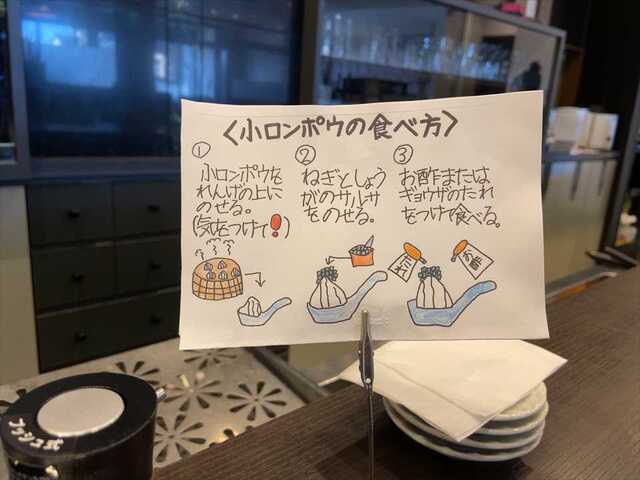 〈小ロンポウの食べ方〉
①
小ロンポウを
れんげの上に
のせる。
(気をつけて!)
②
ねぎとしょう
がのサルサ
をのせる。
③
お酢または
ギョウザのたれ
をつけて食べる。
お酢
プッシュ式